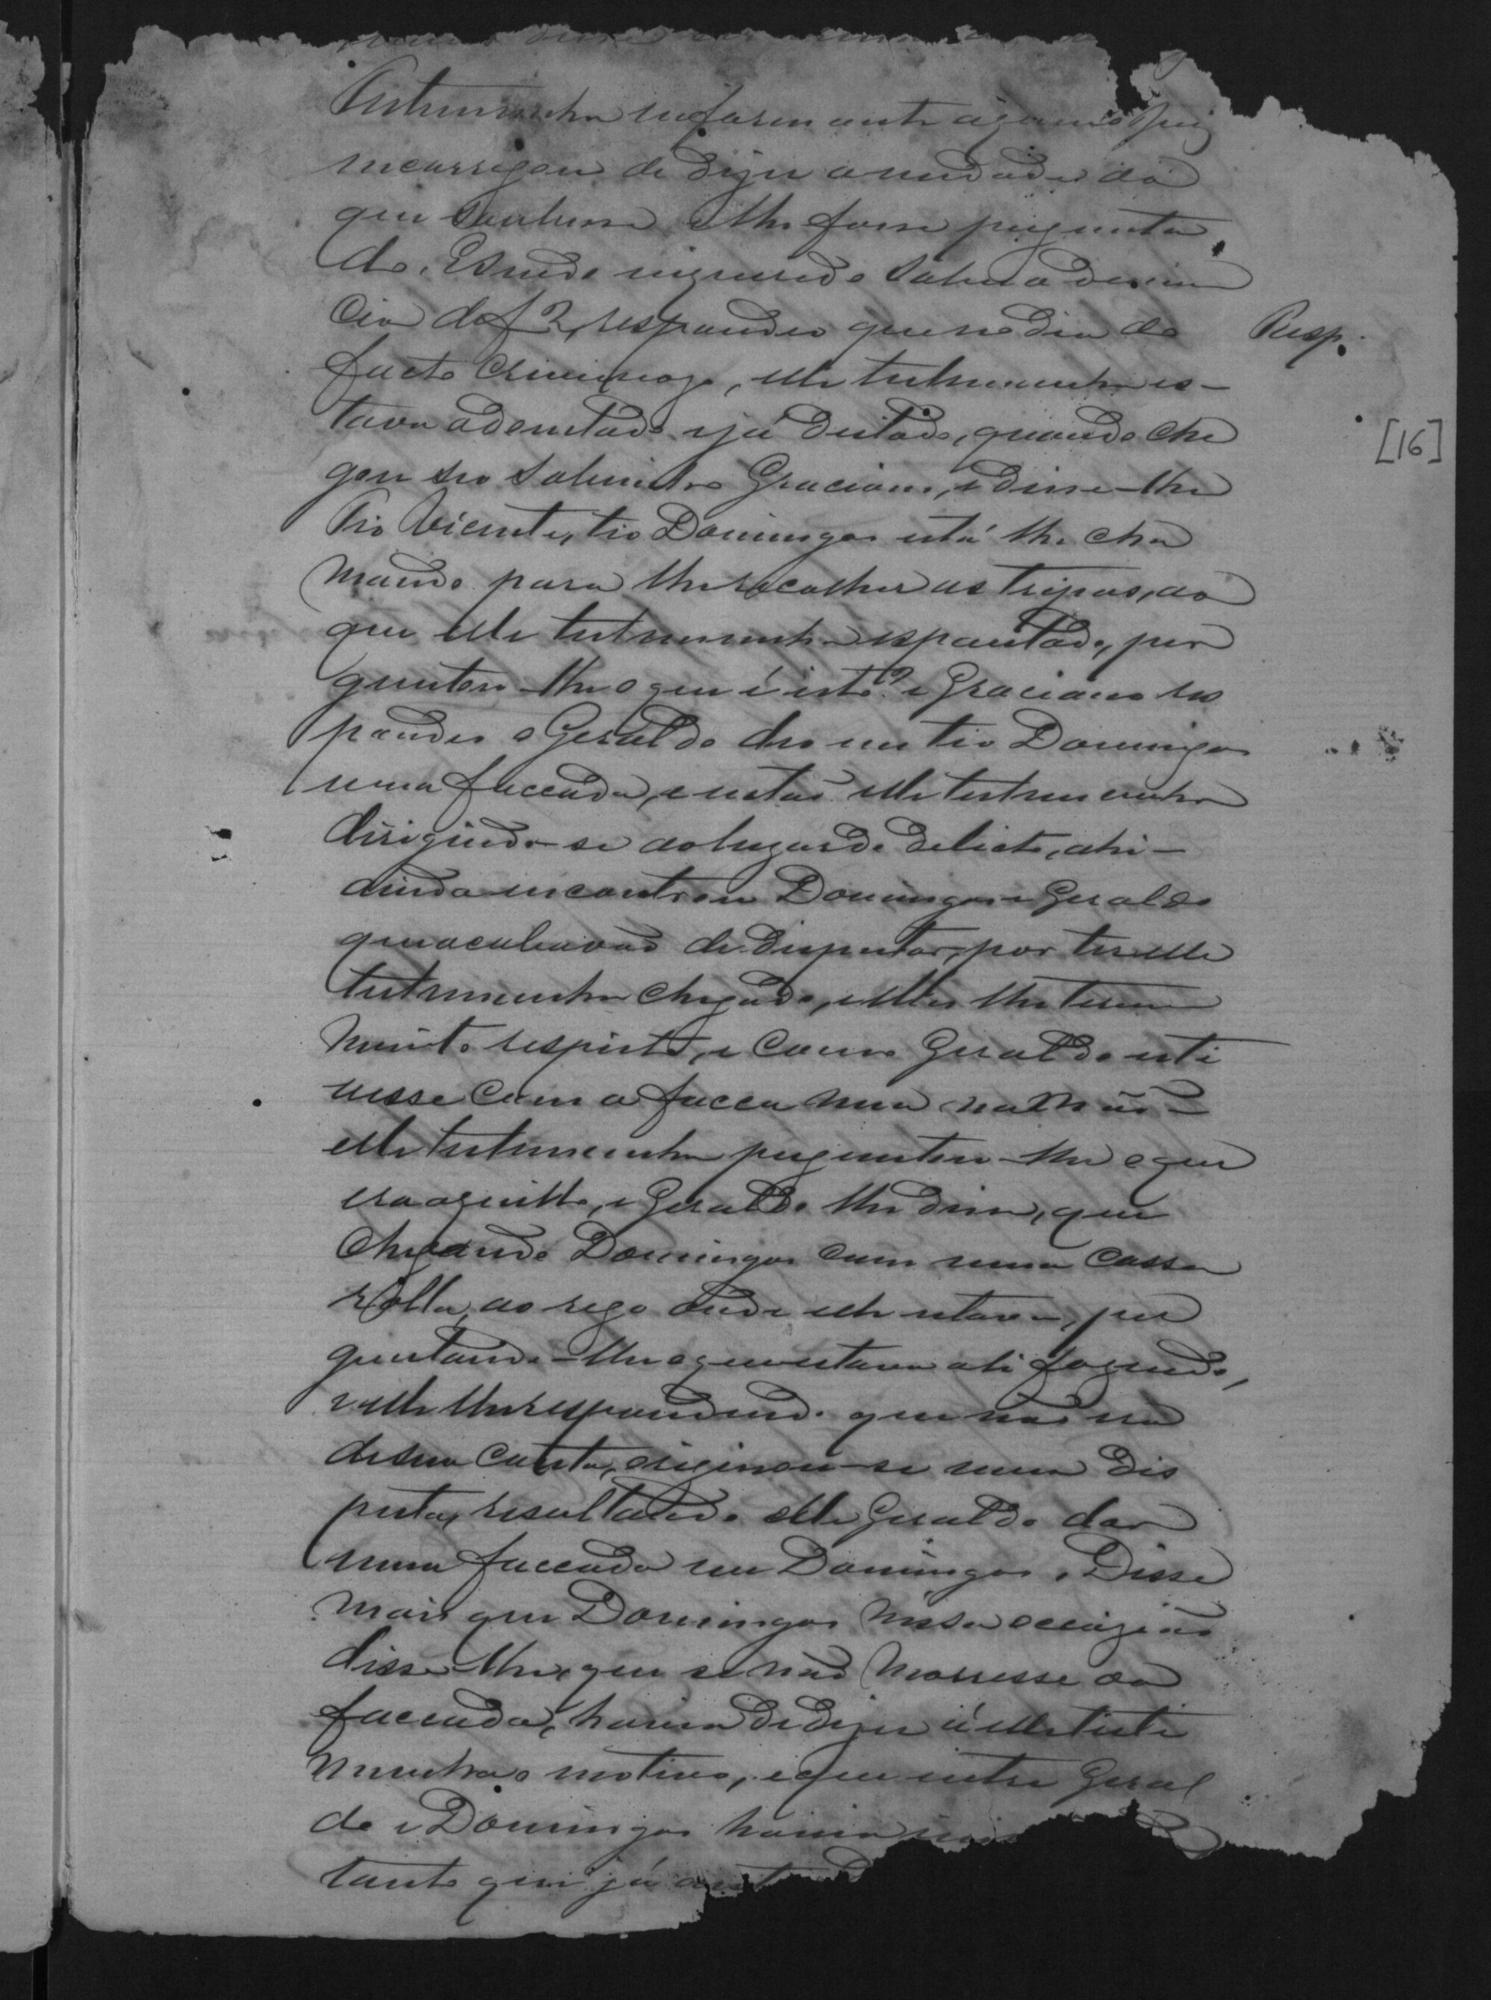 Testemunha informante a quem o Juiz
encarregou de dizer a verdade do
que soubesse e lhe fosse pergunta
do. E sendo inquerido sobre a denun
cia de f 2, respondeu que no dia do
Resp.
facto criminozo, elle testemunha es-
tava adoentado e já deitado, quando che
[16]
gou seo sobrinho Graciano, e disse-lhe
Tio Vicente, tio Domingos está lhe cha
mando para lhe recolher as tripas, ao
que elle testemunha espantado, per
guntou-lhe o que é isto? e Graciano res
pondeo o Geraldo deo em tio Domingos
uma faccada, e então elle testemunha
dirigindo-se ao lugar do delicto, ahi-
ainda encontrou Domingos e Geraldo
que acabavão de disputar, por ter elle
testemunha chegado, e elles lhe terem
muito respeito, e como Geraldo esti
vesse com a facca nua na mão-
elle testemunha perguntou-lhe o que
era aquillo, e Geraldo lhe disse, que
chegando Domingos com uma cassa
rolla, ao rego onde elle estava, per
guntando-lhe o que estava ali fazendo,
e elle lhe respondendo que não era
de sua conta, originou-se uma dis
puta, resultando elle Geraldo dar
uma faccada em Domingos. Disse
mais que Domingos nessa occazião
disse-lhe, que se não morresse da
faccada, havia de dizer á elle teste
munha o motivo, e que entre Geral
do e Domingos havia
tanto que já